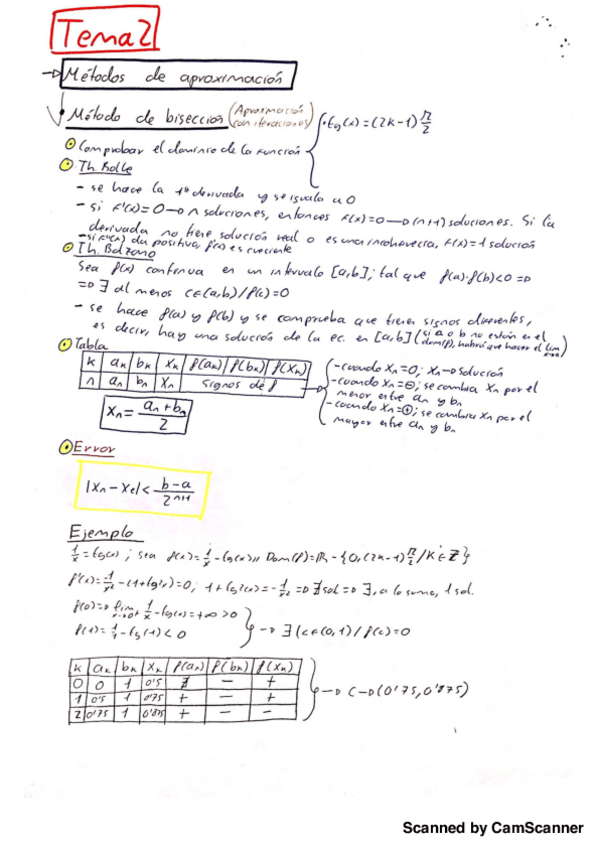 Tema 2
→ Métodos de aproximación
Método de bisección (Aproximación con iteraciones)
• tg(x) = (2k-1) π/2
Comprobar el dominio de la función
Th. Rolle
- se hace la 1ª derivada y se iguala a 0
- si f'(x)=0 → n soluciones, entonces f(x)=0 → (n+1) soluciones. Si la
derivada no tiene solución real o es una incoherencia, f(x)=1 solución
- si f'(x) da positiva, f(x) es creciente
Th. Bolzano
Sea f(x) continua en un intervalo [a,b]; tal que f(a)·f(b)<0 ⇒
⇒ ∃ al menos c∈(a,b)/f(c)=0
- se hace f(a) y f(b) y se comprueba que tienen signos diferentes,
es decir, hay una solución de la ec. en [a,b] (si a o b no están en el dom(f), habrá que hacer el lim)
Tabla
k | aₖ | bₖ | xₖ | f(aₖ) | f(bₖ) | f(xₖ)
n | aₙ | bₙ | xₙ | signos de f
- cuando xₙ=0; xₙ → solución
- cuando xₙ=⊖; se cambia xₙ por el
menor entre aₙ y bₙ
- cuando xₙ=⊕; se cambia xₙ por el
mayor entre aₙ y bₙ
xₙ = (aₙ+bₙ)/2
Error
|xₙ - xₑ| < (b-a)/2ⁿ⁺¹
Ejemplo
1/x = tg(x); sea f(x) = 1/x - tg(x),, Dom(f)=ℝ - {0, (2k-1) π/2 / k ∈ ℤ}
f'(x) = -1/x² - (1+tg²x) = 0; 1+tg²(x) = -1/x² ⇒ ∄ sol ⇒ ∃, a lo sumo, 1 sol.
f(0) ⇒ lim x→0⁺ 1/x - tg(x) = +∞ > 0
f(1) = 1/1 - tg(1) < 0
→ ∃ (c∈(0,1)/f(c)=0
k | aₖ | bₖ | xₖ | f(aₖ) | f(bₖ) | f(xₖ)
0 | 0 | 1 | 0'5 | ∄ | - | +
1 | 0'5 | 1 | 0'75 | + | - | +
2 | 0'75 | 1 | 0'875 | + | - | -
→ C → (0'75, 0'875)
Scanned by CamScanner